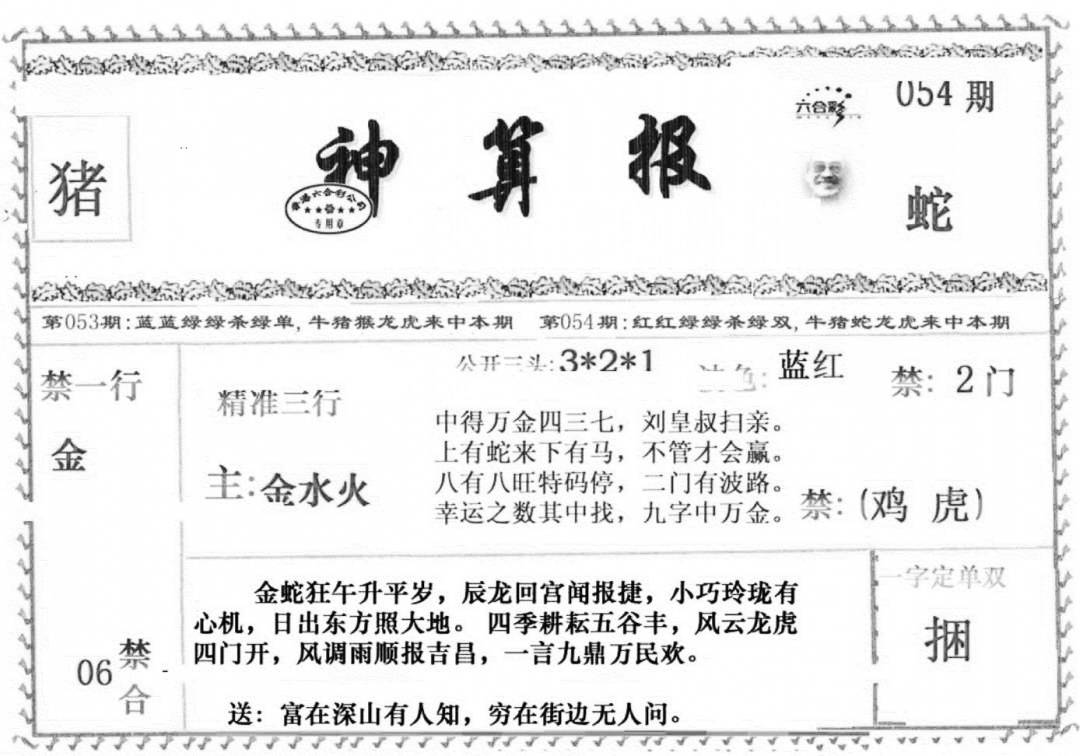 054期
六合彩
猪
神算报
香港六合彩公司
专用章
蛇
第053期:蓝蓝绿绿杀绿单,牛猪猴龙虎来中本期 第054期:红红绿绿杀绿双,牛猪蛇龙虎来中本期
禁一行
金
公开三头:3*2*1
色: 蓝红
禁: 2门
精准三行
主:金水火
中得万金四三七，刘皇叔扫亲。
上有蛇来下有马，不管才会赢。
八有八旺特码停，二门有波路。
幸运之数其中找，九字中万金。
禁:(鸡 虎)
06禁合
金蛇狂午升平岁，辰龙回宫闻报捷，小巧玲珑有
心机，日出东方照大地。 四季耕耘五谷丰，风云龙虎
四门开，风调雨顺报吉昌，一言九鼎万民欢。
送：富在深山有人知，穷在街边无人问。
一字定单双
捆